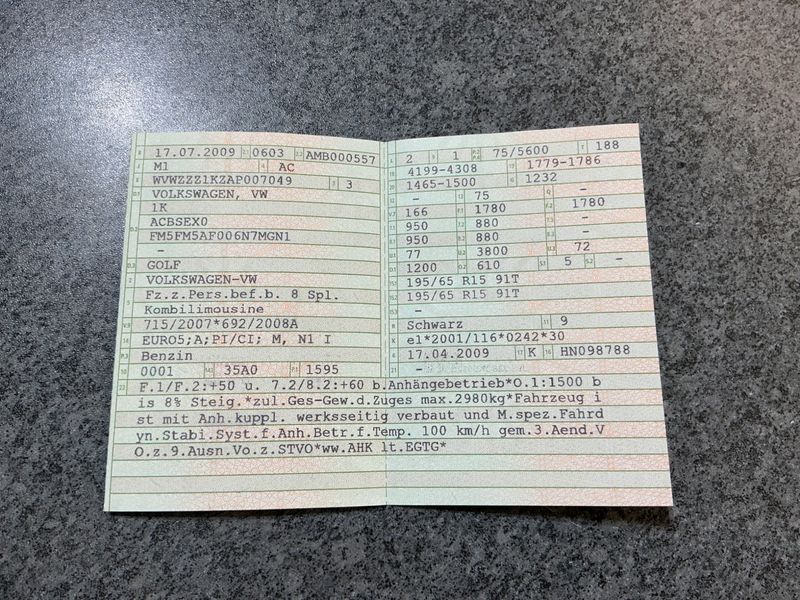 17.07.2009 0603 AMB000557
M1 AC
WVWZZZ1KZAP007049 3
VOLKSWAGEN, VW
1K
ACBSEX0
FM5FM5AF006N7MGN1
-
GOLF
VOLKSWAGEN-VW
Fz.z.Pers.bef.b. 8 Spl.
Kombilimousine
715/2007*692/2008A
EURO5;A;PI/CI; M, N1 I
Benzin
0001 35A0 1595
2 1 75/5600 188
4199-4308 1779-1786
1465-1500 1232
- 75 -
166 1780 1780
950 880 -
950 880 -
77 3800 72
1200 610 5 -
195/65 R15 91T
195/65 R15 91T
-
Schwarz 9
e1*2001/116*0242*30
17.04.2009 K HN098788
-
F.1/F.2:+50 u. 7.2/8.2:+60 b.Anhängebetrieb*O.1:1500 b
is 8% Steig.*zul.Ges-Gew.d.Zuges max.2980kg*Fahrzeug i
st mit Anh.kuppl. werksseitig verbaut und M.spez.Fahrd
yn.Stabi.Syst.f.Anh.Betr.f.Temp. 100 km/h gem.3.Aend.V
O.z.9.Ausn.Vo.z.STVO*ww.AHK lt.EGTG*